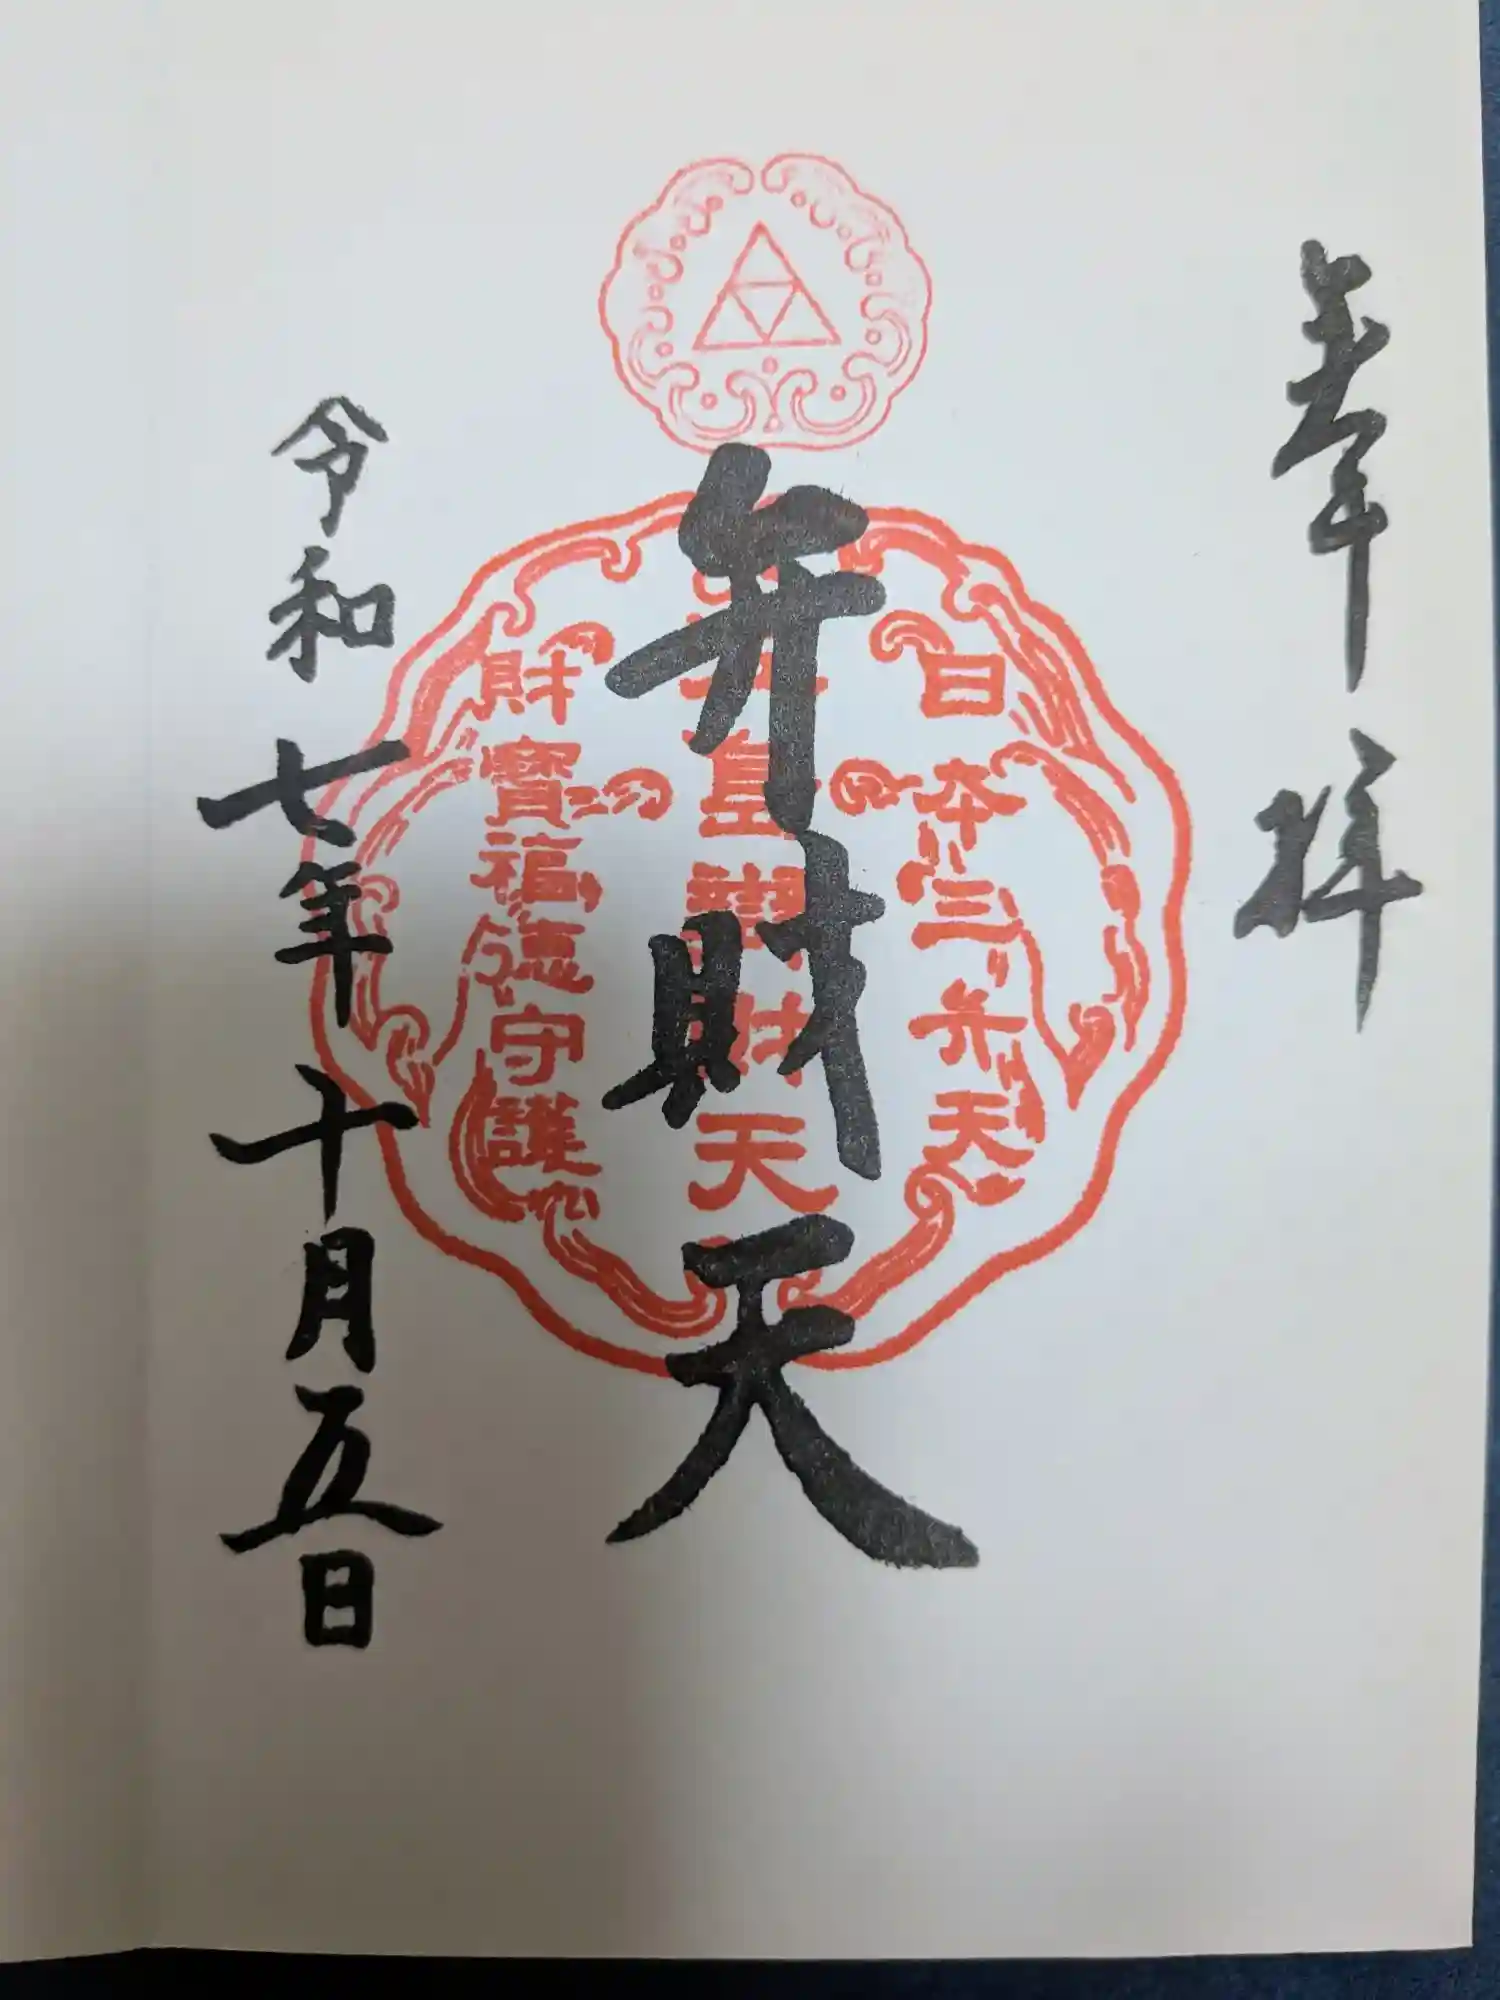 奉拝
日本三弁天
弁財天
財天
財寶福徳守護
令和七年十月五日